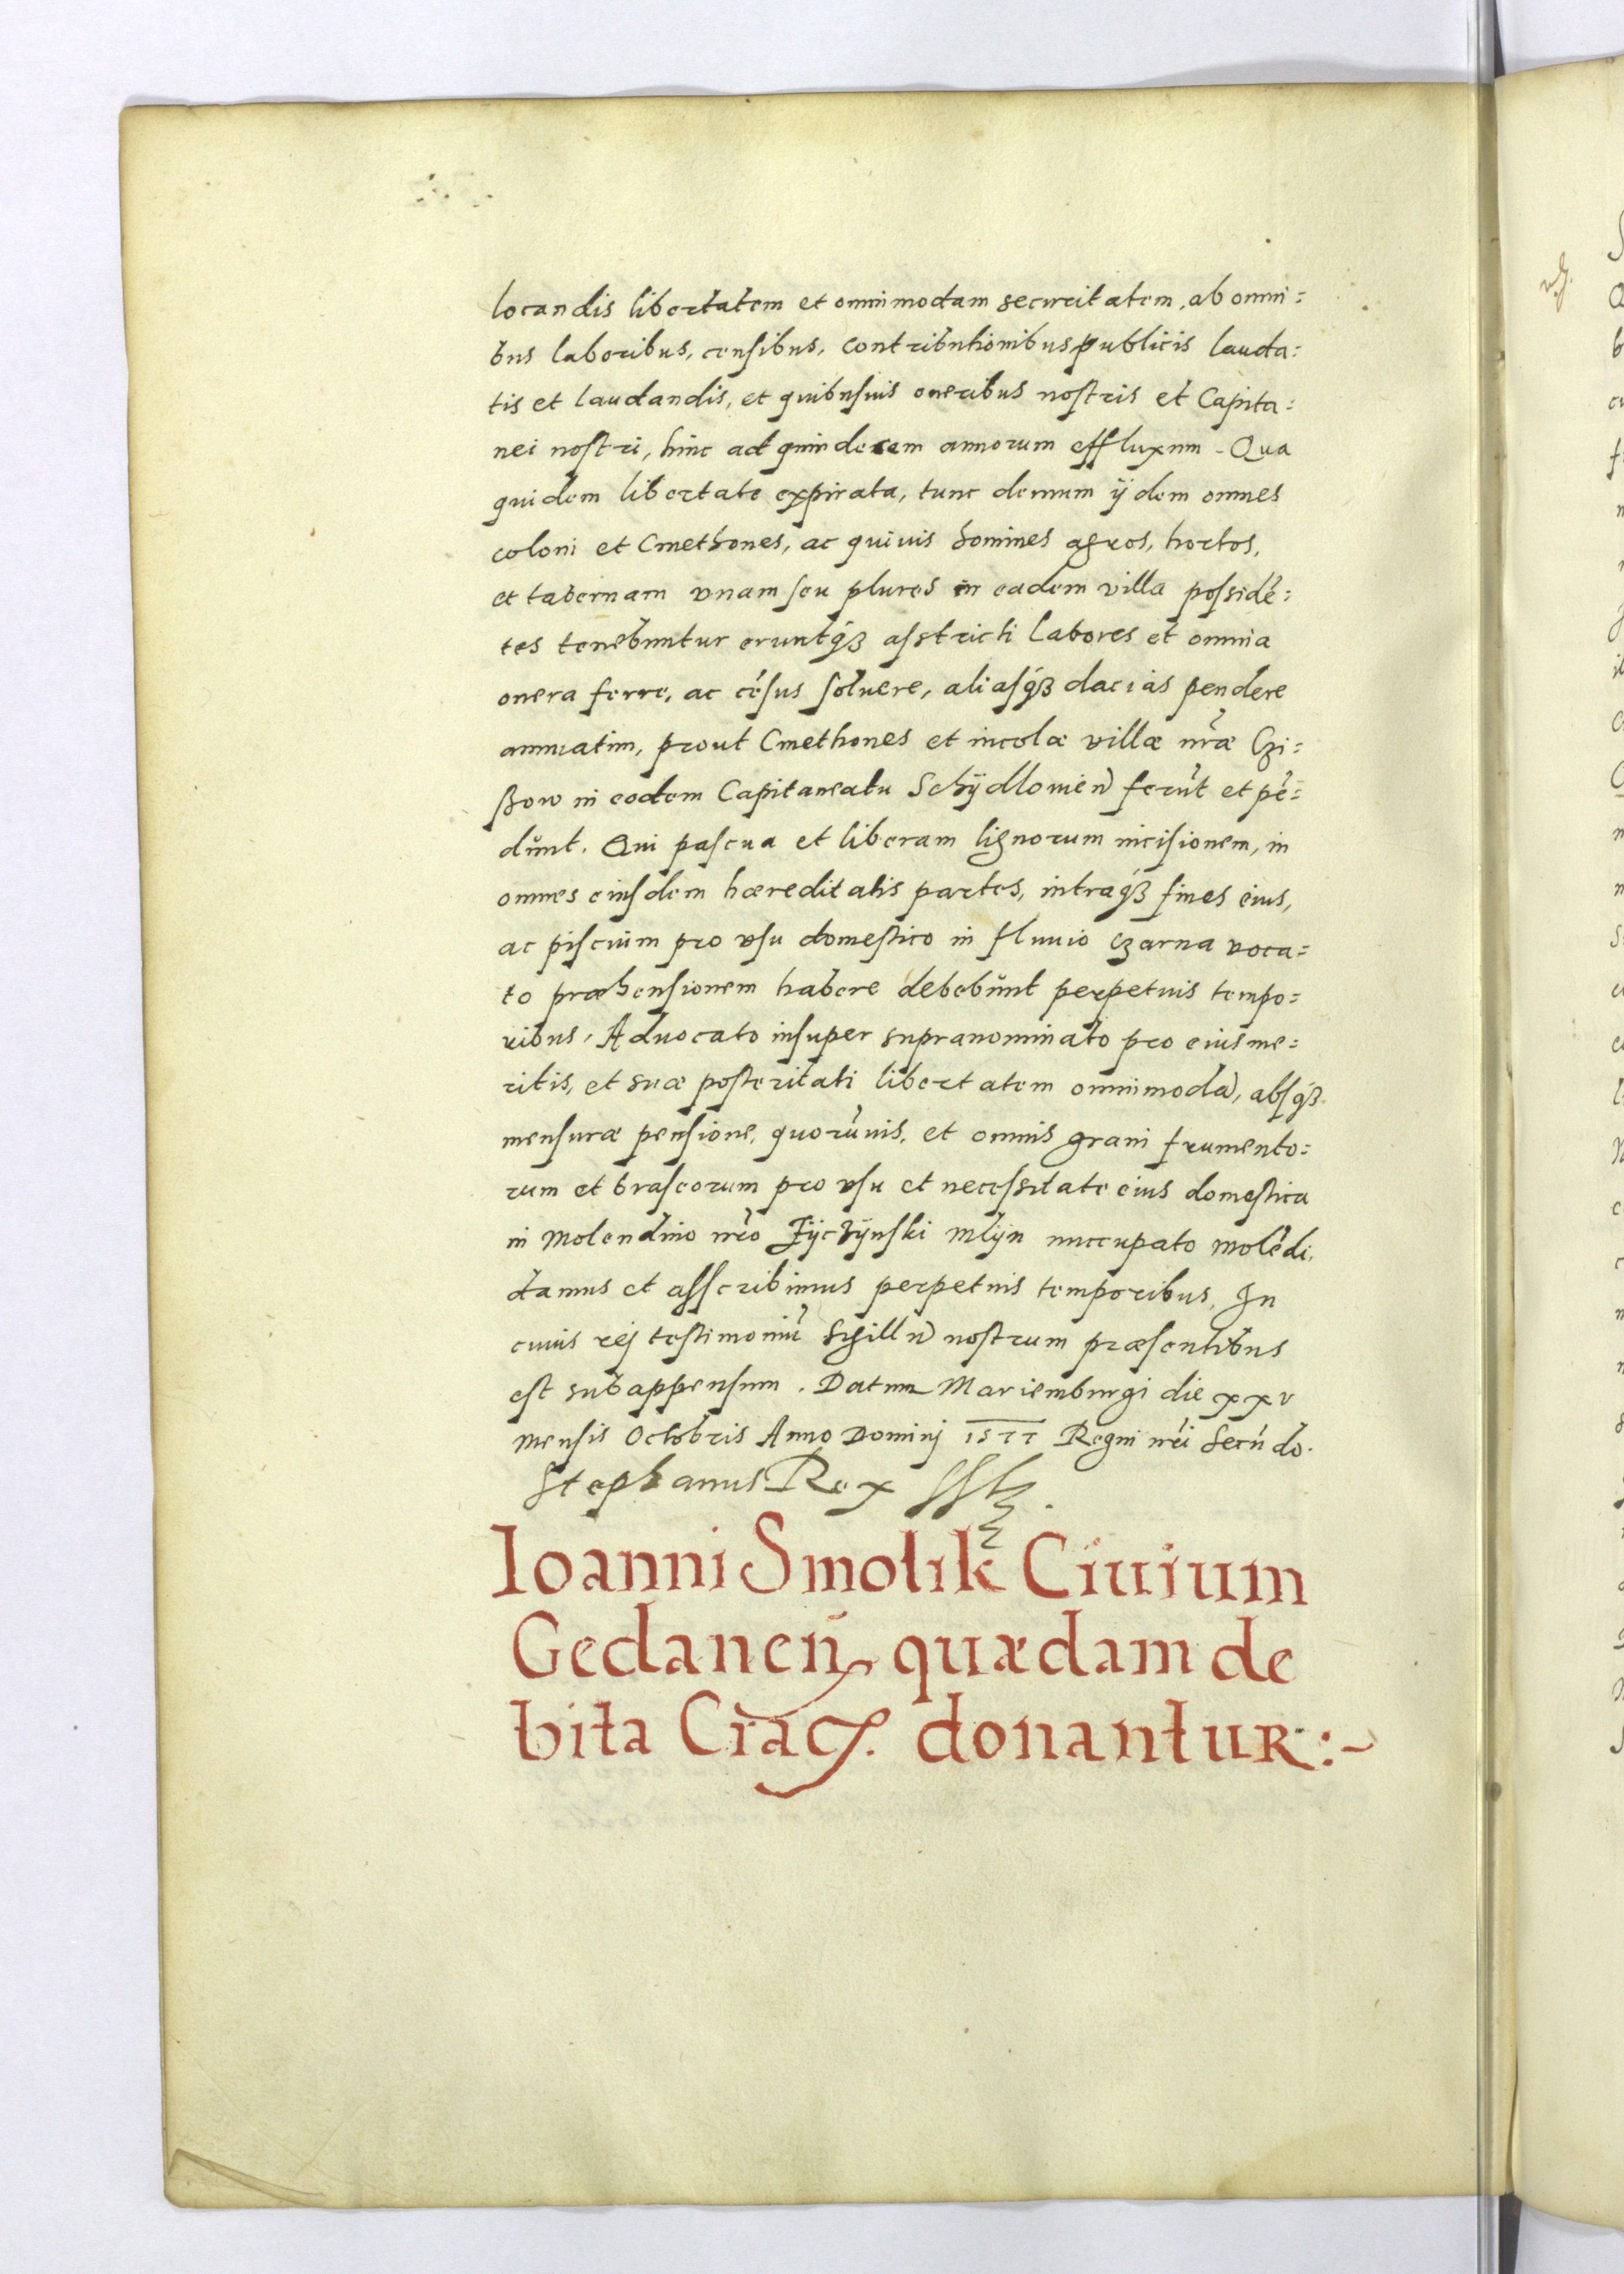 locandis libertatem et omnimodam securitatem, ab omni=
bus laboribus, censibus, contributionibus publicis lauda=
tis et laudandis, et quibusuis oneribus nostris et Capita=
nei nostri, hinc ad quindecem annorum effluxum. Qua
quidem libertate expirata, tunc demum ijdem omnes
coloni et Cmethones, ac quiuis homines agros, hortos,
et tabernam vnam seu plures in eadem villa posside̅=
tes tenebuntur eruntqȝ astricti labores et omnia
onera ferre, ac ce̅sus soluere, aliasqȝ dacias pendere
annuatim, prout Cmethones et incolæ villæ nr̅æ Czi=
ßow in eodem Capitaneatu Schÿdlouien̅ feru̅t et pe̅=
dunt. Qui pascua et liberam lignorum incisionem, in
omnes eiusdem hæreditatis partes, intraqȝ fines eius,
ac piscium pro vsu domestico in fluuio Czarna voca=
to præhensionem habere debebunt perpetuis tempo=
ribus. Aduocato insuper supranominato pro eius me=
ritis, et suæ posteritati libertatem omnimoda̅, absqȝ
mensuræ pensione, quoru̅uis, et omnis grani frumento=
rum et braseorum pro vsu et necessitate eius domestica
in Molendino nr̅o mlÿn nuccupato mole̅di,
damus et asscribimus perpetuis temporibus, In
cuius rej testimoniu̅ Sigillu̅ nostrum præsentibus
est subappensum. Datum Mariemburgi die xxv
mensis Octobris Anno Dominj 1577 Regni nr̅i Secu̅do.
Stephanus Rex
Ioanni Smolik Ciuium
Gedanen̅, quædam de
bita Crac. donantur:-